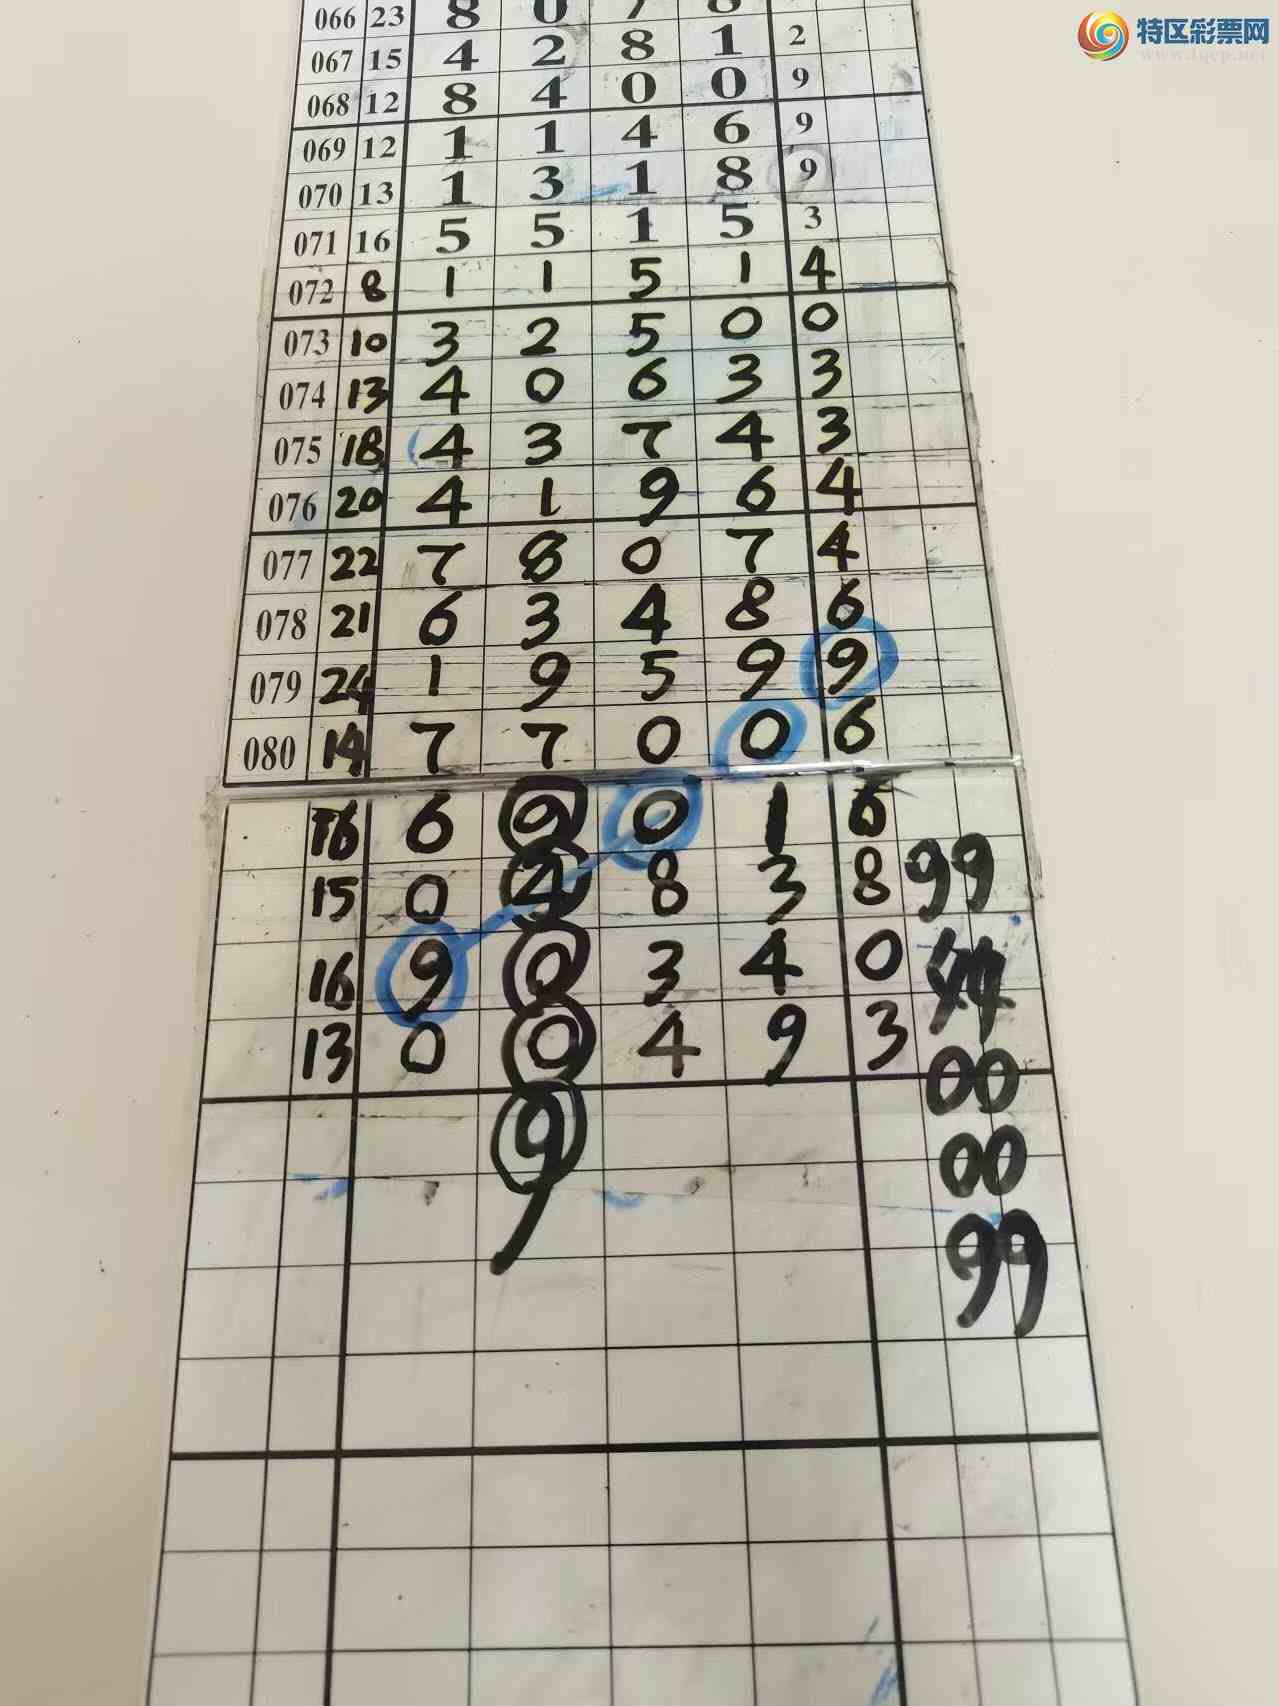 特区彩票网
www.tqcp.net
066 23 8 0 7 8
067 15 4 2 8 1 2
068 12 8 4 0 0 9
069 12 1 1 4 6 9
070 13 1 3 1 8 9
071 16 5 5 1 5 3
072 8 1 1 5 1 4
073 10 3 2 5 0 0
074 13 4 0 6 3 3
075 18 4 3 7 4 3
076 20 4 1 9 6 4
077 22 7 8 0 7 4
078 21 6 3 4 8 6
079 24 1 9 5 9 9
080 14 7 7 0 0 6
16 6 9 0 1 6
15 0 4 8 3 8 99
16 9 0 3 4 0 44
13 0 0 4 9 3 00
9 00
99